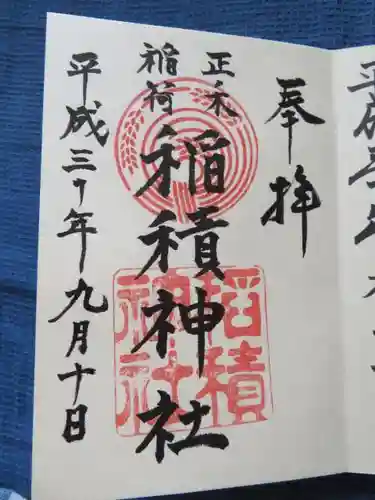 奉拝
正ノ木
稲荷
稲積神社
稲積
神社
平成三十年九月十日